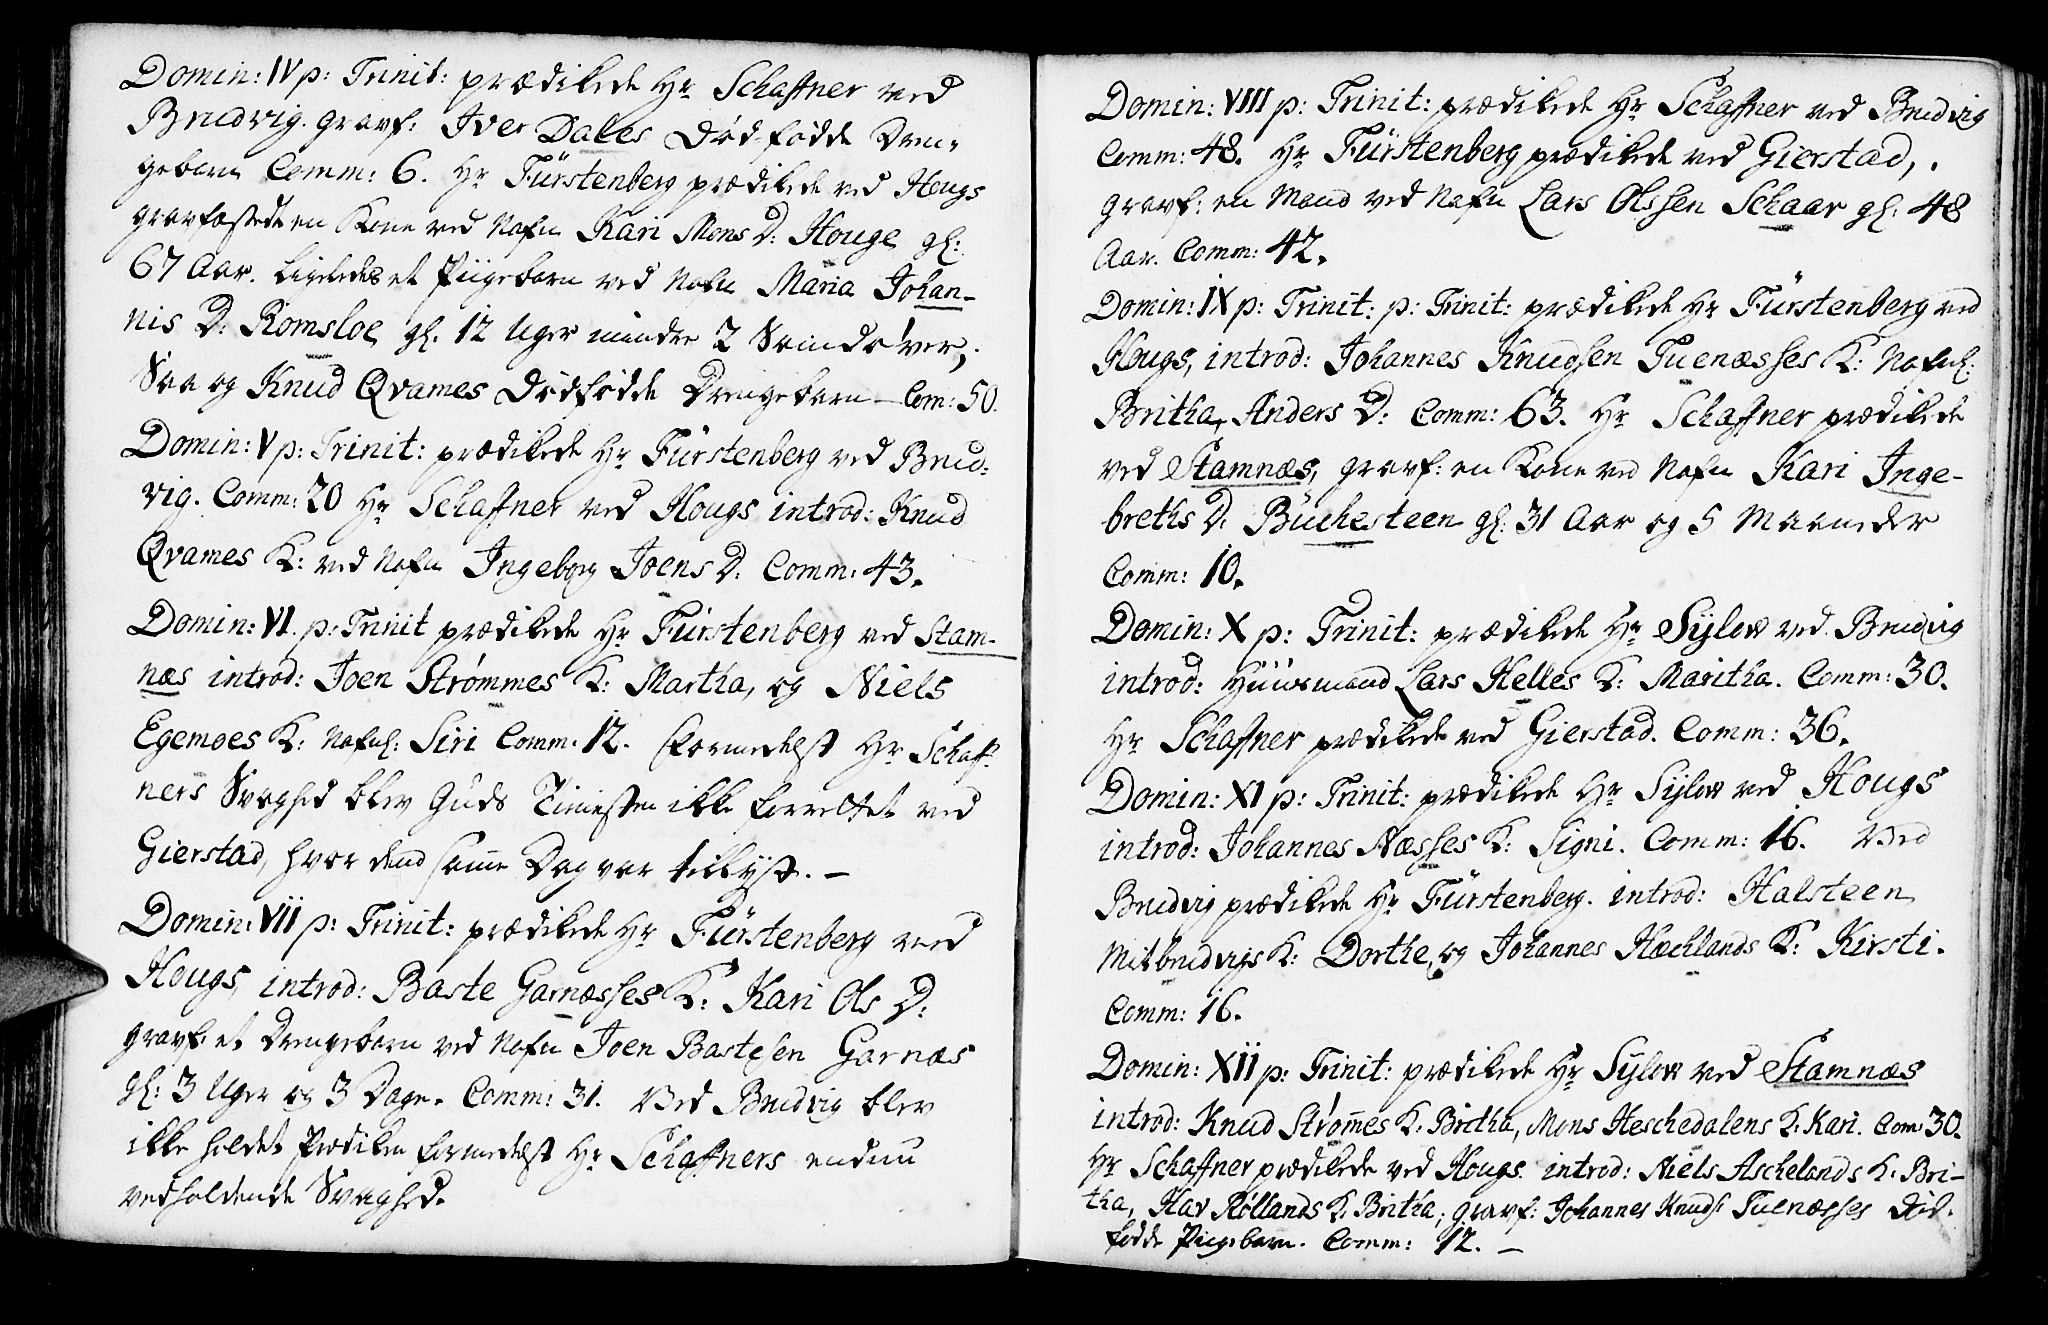 Domin: IV p: Trinit: prædikede Hr Schaffner ved
Brudvig. gravf: Iver Dales Dødfødde Dren-
gebarn Comm: 6. Hr Fürstenberg prædikede ved Hougs
gravfæstede en Kone ved Nafn Kari Mons D: Houge gl:
67 Aar. Ligeledes et Piigebarn ved Nafn Maria Johan-
nis D: Romsloe gl. 12 Uger mindre 2
Saa og Knud Qvames Dødfødde Drengebarn - Com: 50.
Domin: V p: Trinit: prædikede Hr Fürstenberg ved Brud-
vig. Comm: 20 Hr Schaffner ved Hougs introd: Knud
Qvames K: ved Nafn Ingeborg Joens D. Comm: 43.
Domin: VI. p: Trinit prædikede Hr Fürstenberg ved Stam-
næs introd: Joen Strømmes K: Martha, og Niels
Egemoes K: Nafnl: Siri Comm. 12. formedelst Hr Schaff-
ners Svaghed blev Guds Tienesten ikke forrettet ved
Gierstad, hvor dend samme Dag var tillyst. -
Domin: VII p: Trinit: prædikede Hr Fürstenberg ved
Hougs, introd: Baste Garnæsses K: Kari Ols D:
gravf: et Drengebarn ved Nafn Joen Bastesen Garnæs
gl: 3 Uger og 3 Dage. Comm: 31. Ved Brudvig blev
ikke holdet Prædiken formedelst Hr Schaffners endnu
vedholdende Svaghed.
Domin: VIII p: Trinit: prædikede Hr Schaffner ved Brudvig
Comm: 48. Hr Fürstenberg prædikede ved Gierstad,.
gravf: en Mand ved Nafn Lars Olssen Schaar gl. 48
Aar. Comm: 42.
Domin: IX p: Trinit: p: Trinit: prædikede Hr Fürstenberg ved
Hougs, introd: Johannes Knudsen Tuenæsses K: Nafnl:
Britha, Anders D: Comm: 63. Hr Schaffner prædikede
ved Stamnæs, gravf: en Kone ved Nafn Kari Inge-
breths D. Büchesteen gl: 31 Aar og 5 Maaneder
Comm: 10.
Domin: X p: Trinit: prædikede Hr Sylow ved Brudvig
introd: Huusmand Lars Helles K: Maritha. Comm: 30.
Hr Schaffner prædikede ved Gierstad. Comm: 36.
Domin: XI p: Trinit: prædikede Hr Sylow ved Hougs
introd: Johannes Næsses K: Signi. Comm: 16. Ved
Brudvig prædikede Hr Fürstenberg. introd: Halsteen
Mitbrudvigs K: Dorthe, og Johannes Hæchlands K: Kirsti.
Comm: 16.
Domin: XII p: Trinit: prædikede Hr Sylow ved Stamnæs
introd: Knud Strømes K. Britha, Mons Heschedalens K. Kari. Com 30.
Hr Schaffner prædikede ved Hougs. introd: Niels Aschelands K. Bri-
tha, Hav Røllands K. Britha; gravf: Johannes Knuds: Tuenæsses død-
fødde Piigebarn. Comm: 12. -